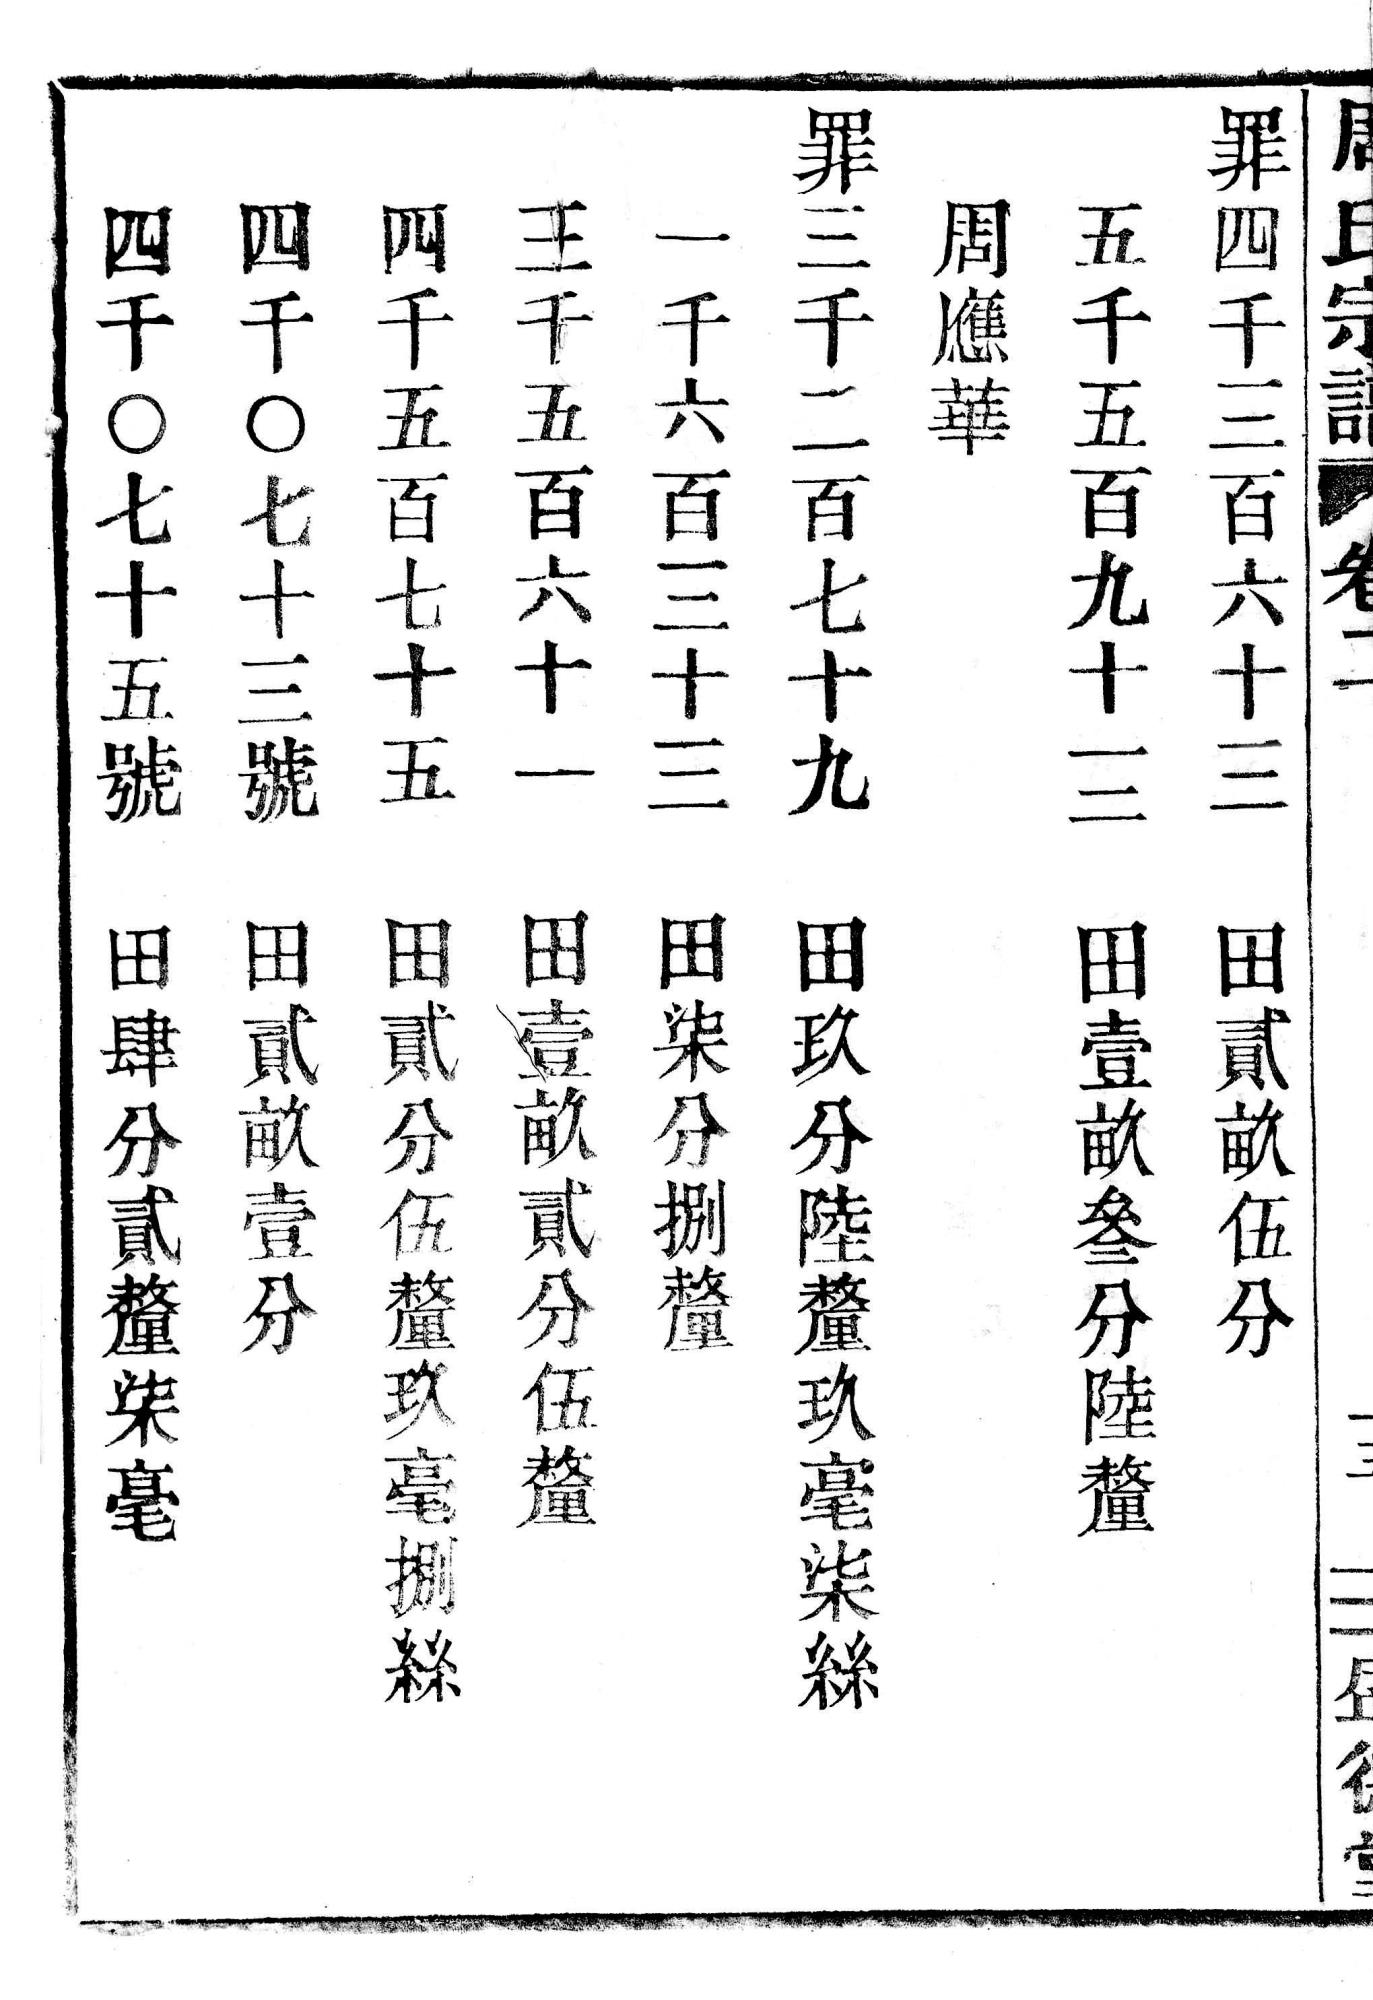 周氏宗譜 卷二
罪四千三百六十三 田貳畝伍分
五千五百九十三 田壹畝叄分陸釐
周應華
罪三千二百七十九 田玖分陸釐玖毫柒絲
一千六百三十三 田柒分捌釐
王千五百六十一 田壹畝貳分伍釐
四千五百七十五 田貳分伍釐玖毫捌絲
四千〇七十三號 田貳畝壹分
四千〇七十五號 田肆分貳釐柒毫